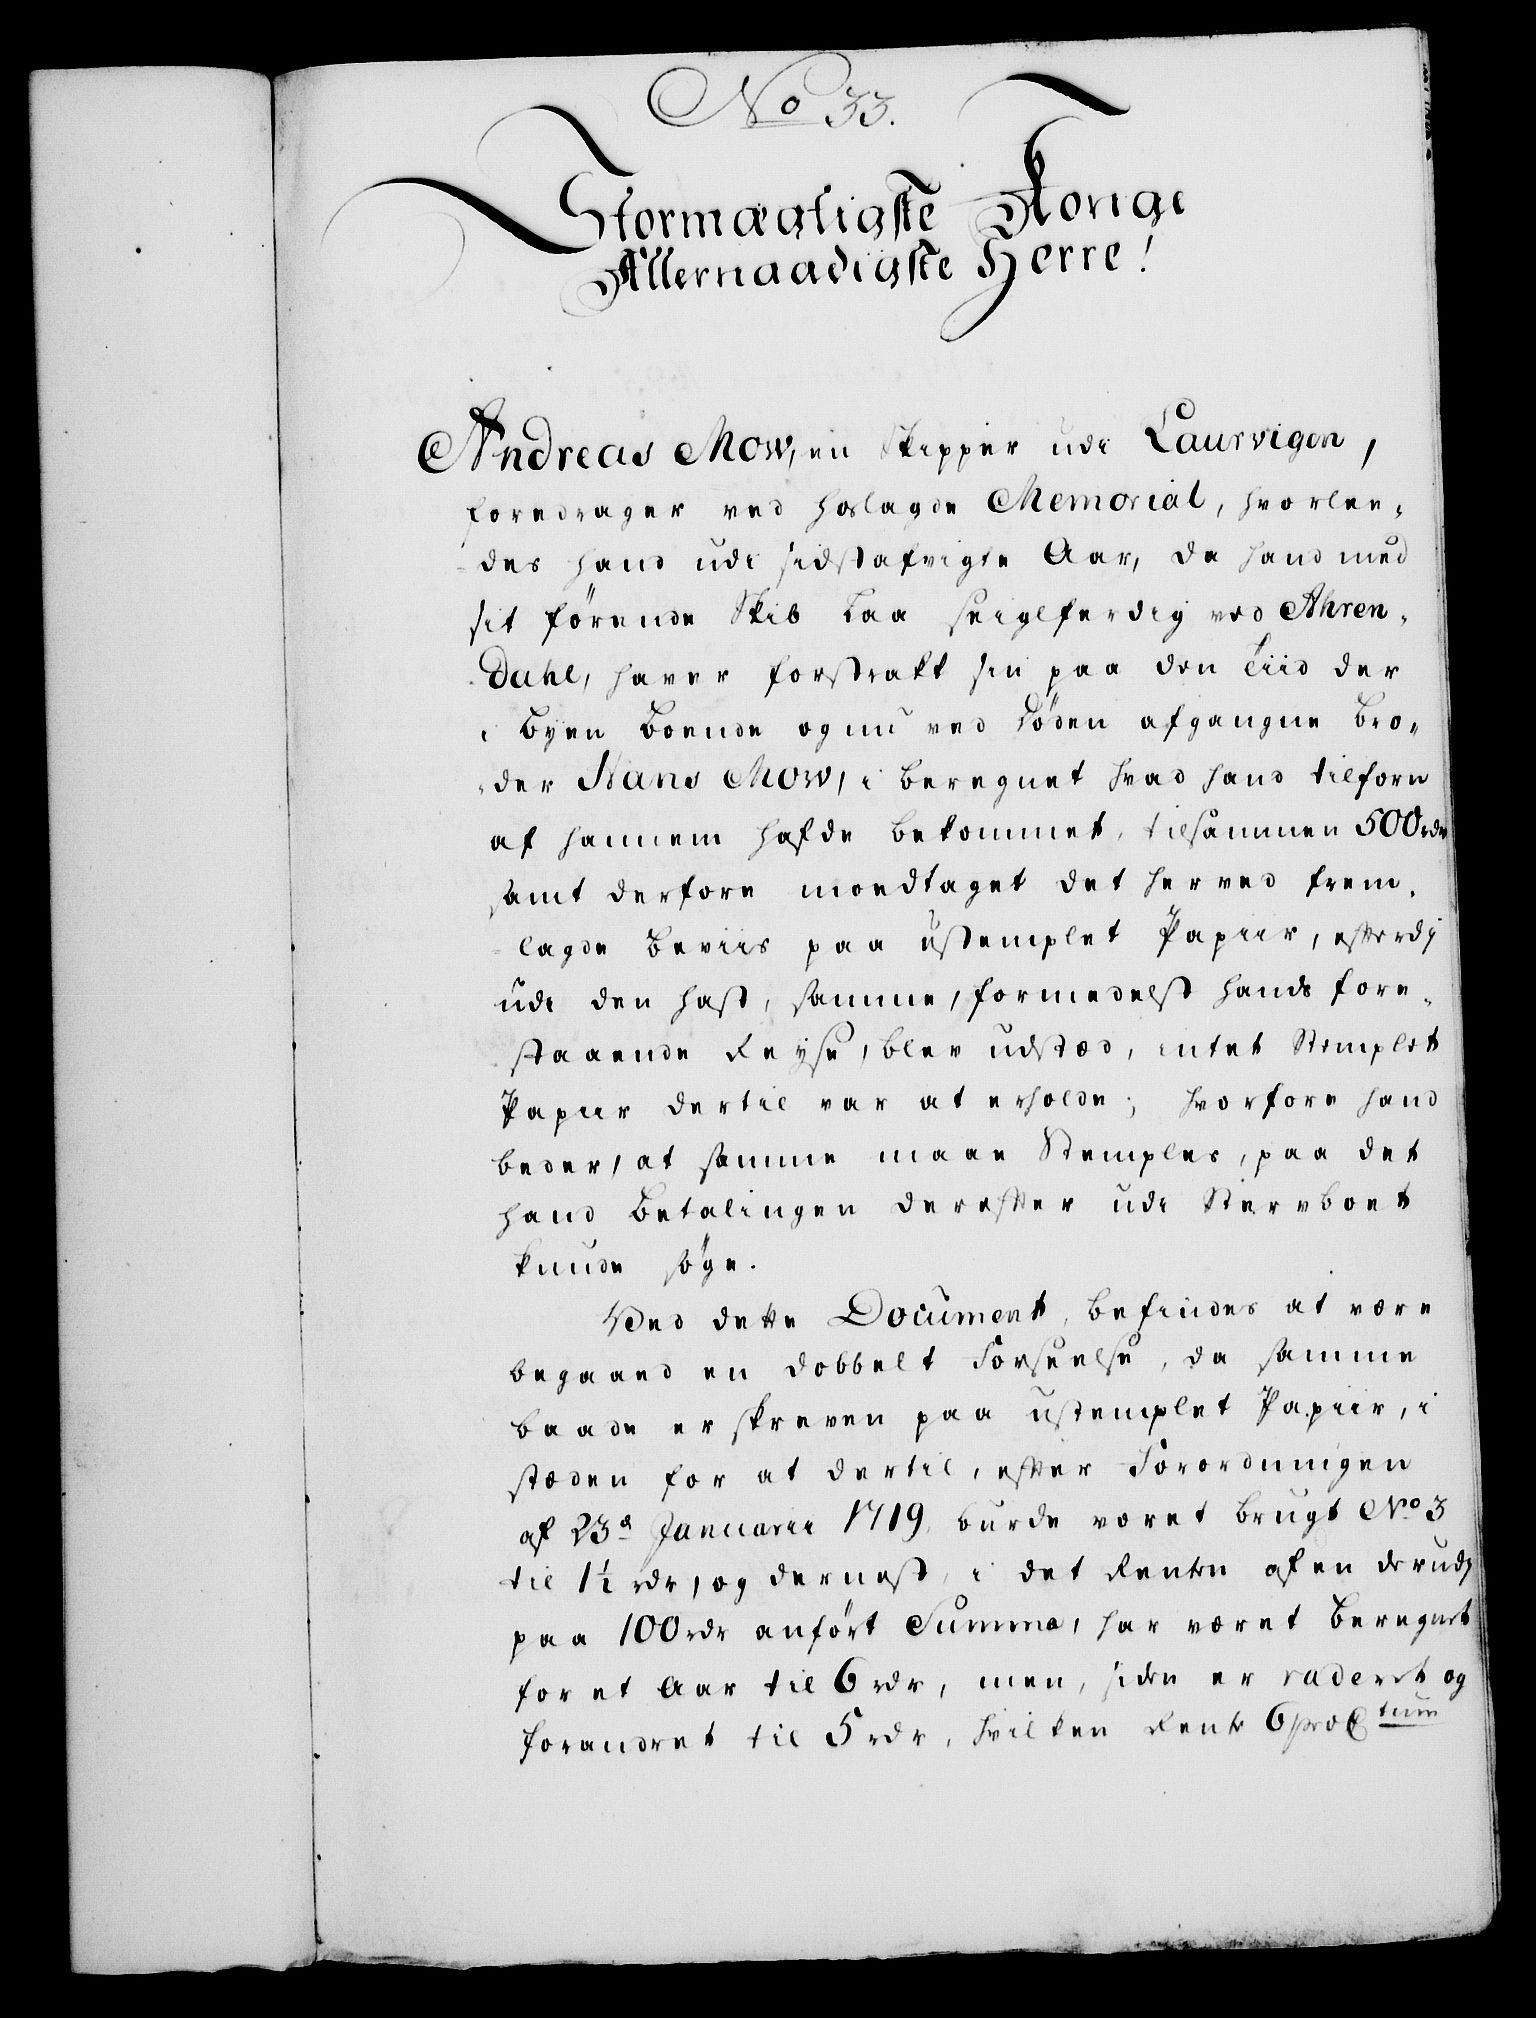 No 33.
Stormægtigste Konge
Allernaadigste Herre!
Andreas Mow, en Skipper udi Laurvigen,
foredrager ved hoslagde Memorial, hvorlee-
des hand udi sidstafvigte Aar, da hand med
sit förende Skib laa seiglferdig ved Ahren-
dahl, haver forstrakt sin paa den Tiid der
i Byen Boende og nu ved Döden afgangne Bro-
der Hans Mow, i beregnet hvad hand tilforn
af hannem hafde bekommet, tilsammen 500 rdr
samt derfore moedtaget det herved frem-
lagde Beviis paa ustemplet Papiir, efterdj
udi den hast, samme, formedelst hands fore-
staaende Reyse, blev udstæd, intet Stemplet
Papiir dertil var at erholde; hvorfore hand
beder, at samme maae Stemples, paa det
hand Betalingen derefter udi Stervboet
kunde söge.
Ved dette Document, befindes at være
begaaed en dobbelt Forseelse, da samme
baade er skreven paa ustemplet Papiir, i
stæden for at dertil, efter Forordningen
af 23de Januarii 1719, burde været brugt No 3
til 1½ rdr, og dernæst, i det Renten af en derudj
paa 100 rdr anfört Summa, har været beregnet
for et Aar til 6 rdr, men, siden er raderet og
forandret til 5 rdr, hvilken Rente 6 pro Ctum